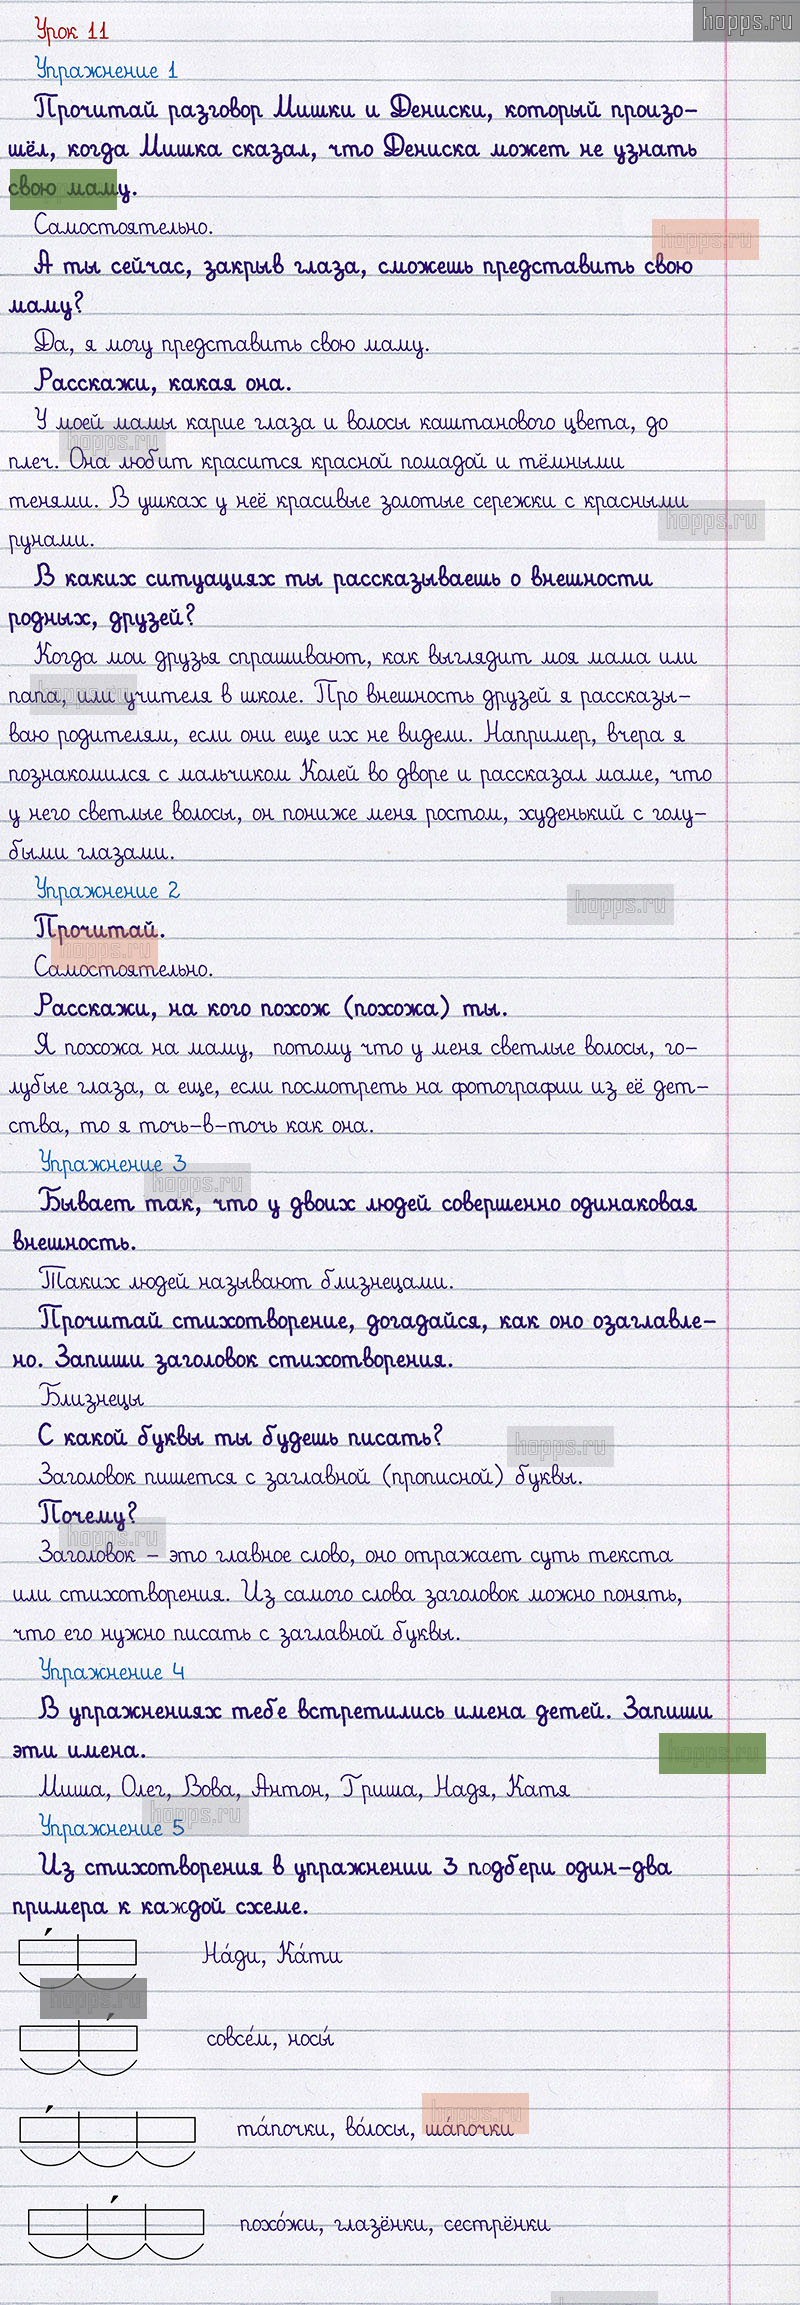 hopps.ru
Урок 11
Упражнение 1
Прочитай разговор Мишки и Дениски, который произо-
шёл, когда Мишка сказал, что Дениска может не узнать
свою маму.
Самостоятельно.
hopps.ru
А ты сейчас, закрыв глаза, сможешь представить свою
маму?
Да, я могу представить свою маму.
Расскажи, какая она.
У моей мамы карие глаза и волосы каштанового цвета, до
hopps.ru
плеч. Она любит красится красной помадой и тёмными
тенями. В ушках у неё красивые золотые сережки с красными
hopps.ru
рунами.
В каких ситуациях ты рассказываешь о внешности
родных, друзей?
Когда мои друзья спрашивают, как выглядит моя мама или
папа, или учителя в школе. Про внешность друзей я рассказы-
hopps.ru
ваю родителям, если они еще их не видели. Например, вчера я
познакомился с мальчиком Колей во дворе и рассказал маме, что
у него светлые волосы, он пониже меня ростом, худенький с голу-
быми глазами.
Упражнение 2
hopps.ru
Прочитай.
hopps.ru
Самостоятельно.
Расскажи, на кого похож (похожа) ты.
Я похожа на маму, потому что у меня светлые волосы, го-
лубые глаза, а еще, если посмотреть на фотографии из её дет-
ства, то я точь-в-точь как она.
Упражнение 3
hopps.ru
Бывает так, что у двоих людей совершенно одинаковая
внешность.
Таких людей называют близнецами.
Прочитай стихотворение, догадайся, как оно озаглавле-
но. Запиши заголовок стихотворения.
Близнецы
С какой буквы ты будешь писать?
hopps.ru
Заголовок пишется с заглавной (прописной) буквы.
Почему?
hopps.ru
Заголовок – это главное слово, оно отражает суть текста
или стихотворения. Из самого слова заголовок можно понять,
что его нужно писать с заглавной буквы.
Упражнение 4
В упражнениях тебе встретились имена детей. Запиши
эти имена.
hopps.ru
Миша, Олег, Вова, Антон, Гриша, Надя, Катя
hopps.ru
Упражнение 5
Из стихотворения в упражнении 3 подбери один-два
примера к каждой схеме.
На́ди, Ка́ти
hopps.ru
совсе́м, носы́
hopps.ru
та́почки, во́лосы, ша́почки
похо́жи, глазёнки, сестрёнки